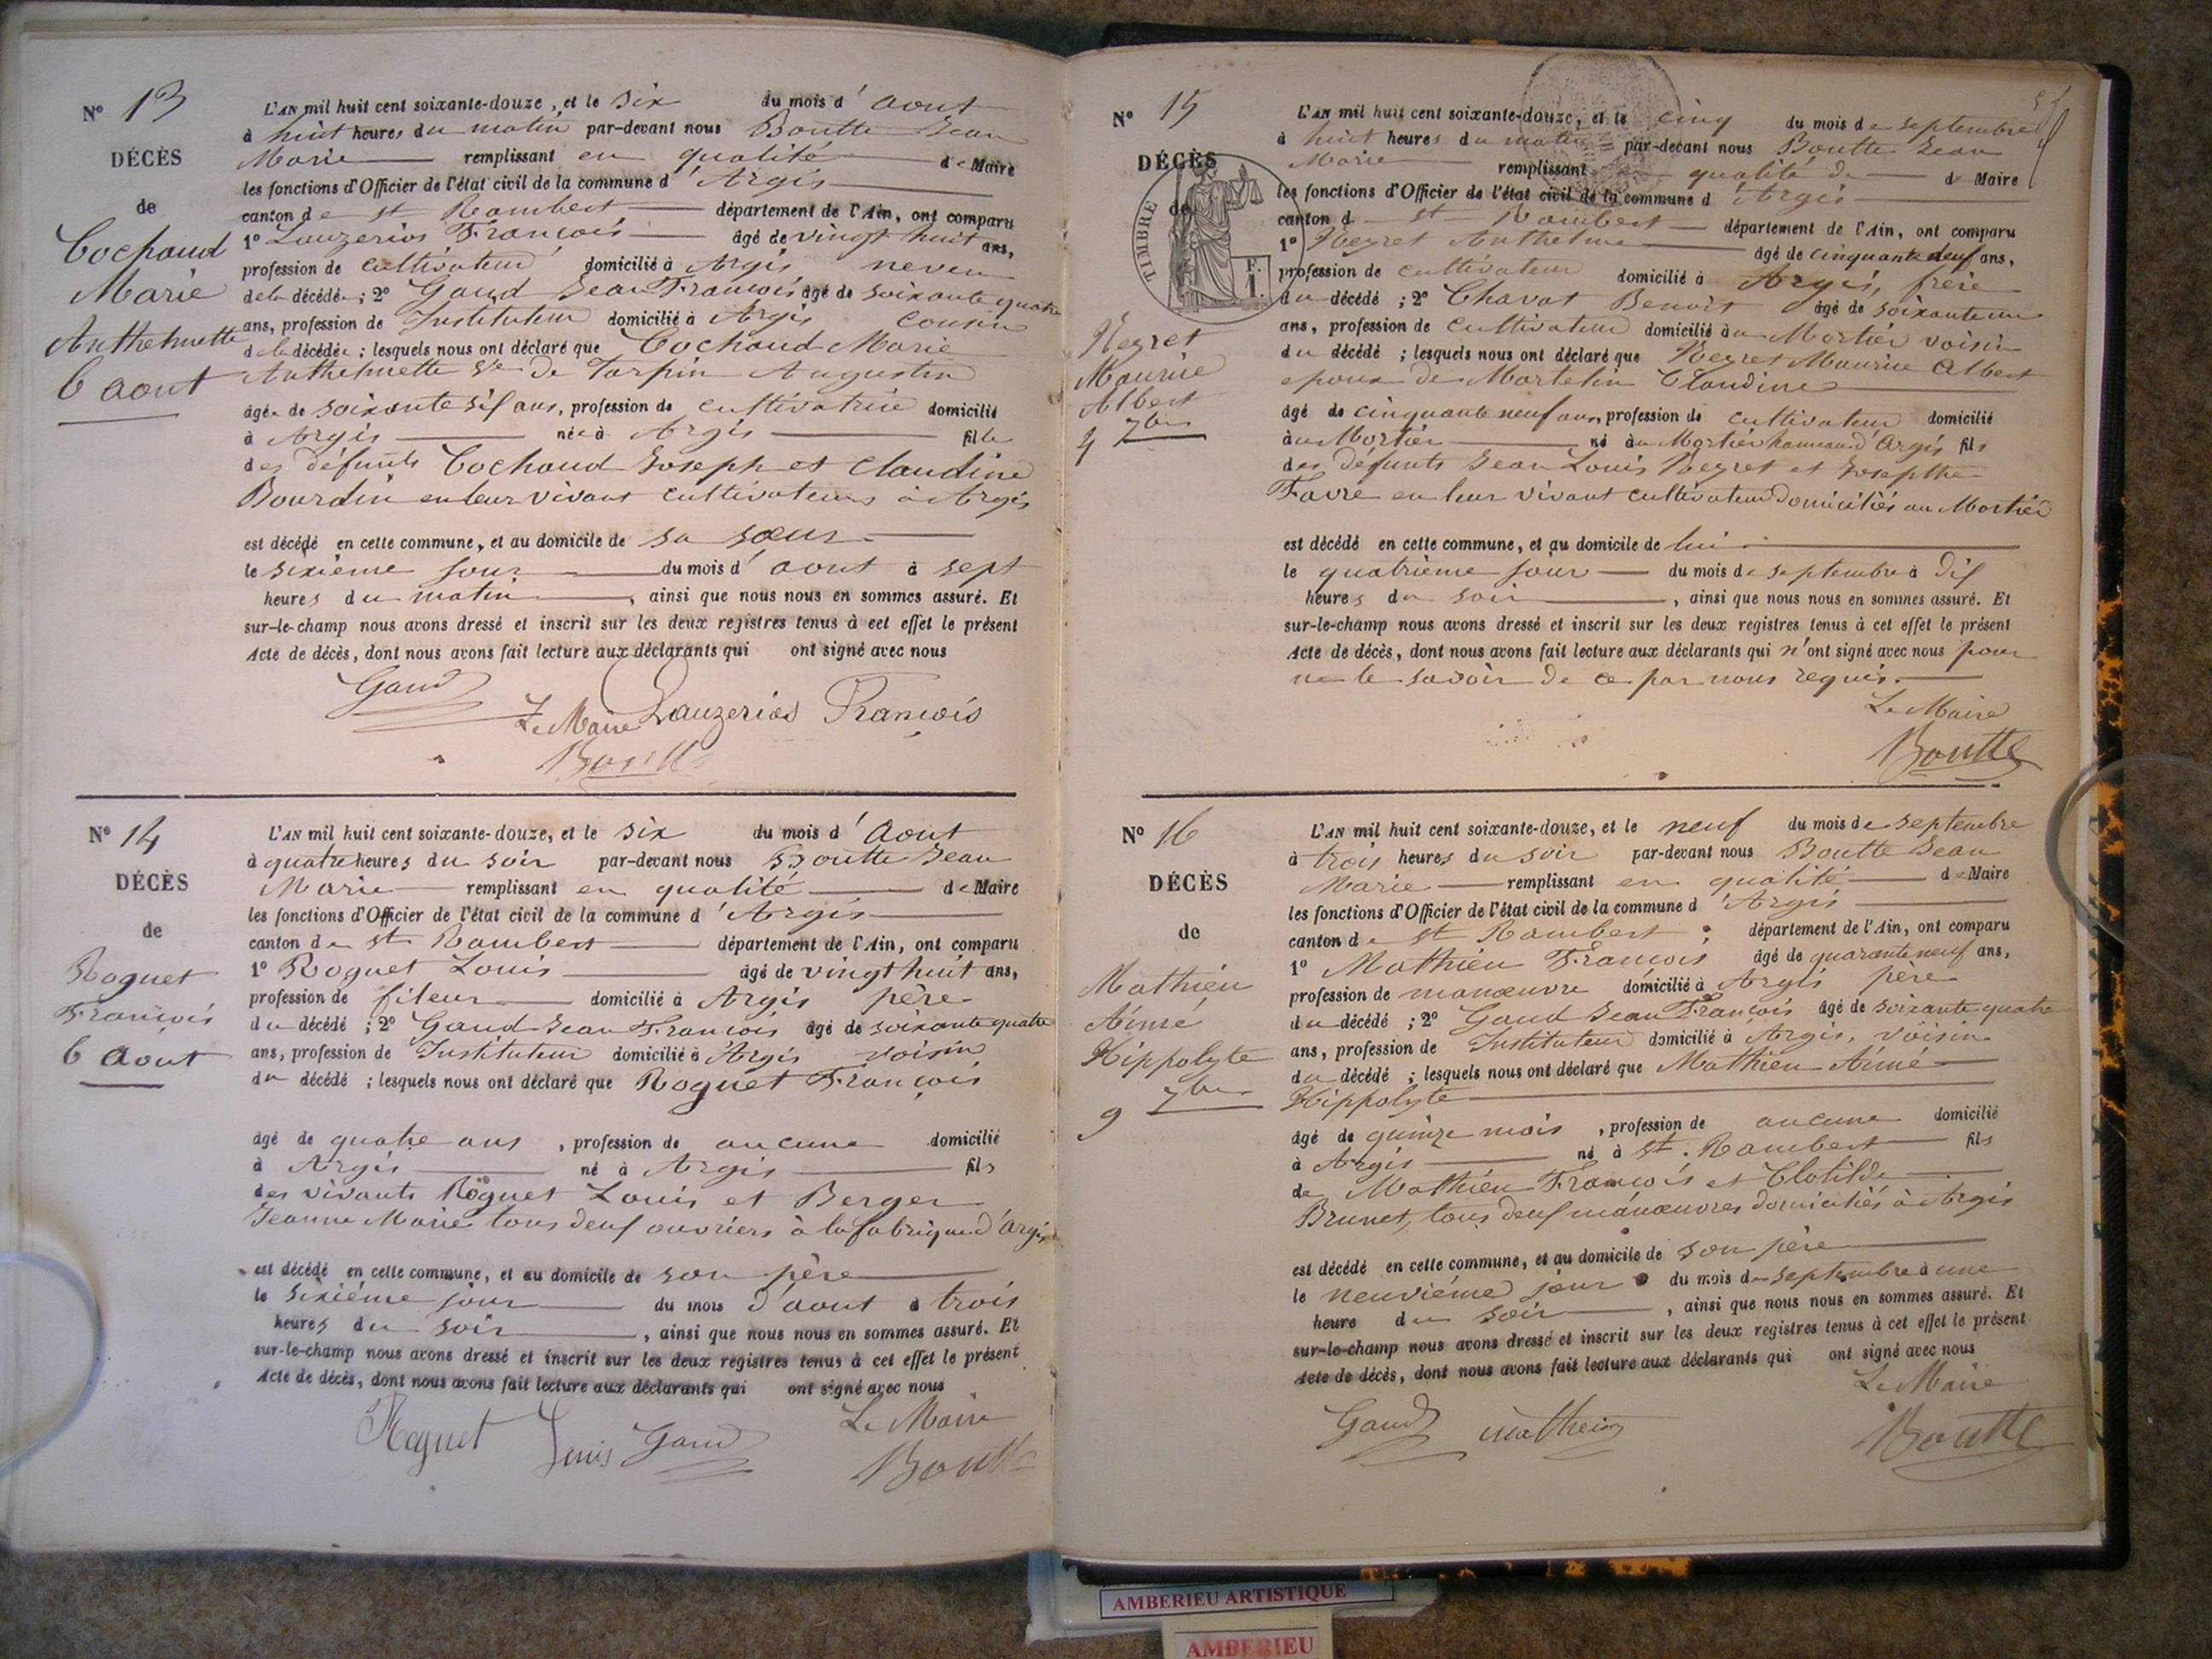 N° 13
DÉCÈS
de
Cochaud
Marie
Anthelmette
6 aout
L'AN mil huit cent soixante-douze, et le six du mois d'aout
à huit heures du matin par-devant nous Boutte Jean
Marie remplissant en qualité de Maire
les fonctions d'Officier de l'état civil de la commune d'Argis
canton de st Rambert département de l'Ain, ont comparu
1° Lauzerias François âgé de vingt huit ans,
profession de cultivateur domicilié à Argis neveu
de la décédée ; 2° Gaud Jean François âgé de soixante quatre
ans, profession de Instituteur domicilié à Argis cousin
de la décédée ; lesquels nous ont déclaré que Cochaud Marie
Anthelmette Ve de Tarpin Augustin
âgée de soixante six ans, profession de cultivatrice domicilié
à Argis née à Argis fille
des défunts Cochaud Joseph et Claudine
Bourdin en leur vivant cultivateurs à Argis
est décédé en cette commune, et au domicile de sa sœur
le sixième jour du mois d'aout à sept
heures du matin, ainsi que nous nous en sommes assuré. Et
sur-le-champ nous avons dressé et inscrit sur les deux registres tenus à cet effet le présent
Acte de décès, dont nous avons fait lecture aux déclarants qui ont signé avec nous
Gaud
Le Maire Lauzerias François
Boutte
N° 14
DÉCÈS
de
Roguet
François
6 Aout
L'AN mil huit cent soixante-douze, et le six du mois d'Aout
à quatre heures du soir par-devant nous Boutte Jean
Marie remplissant en qualité de Maire
les fonctions d'Officier de l'état civil de la commune d'Argis
canton de st Rambert département de l'Ain, ont comparu
1° Roguet Louis âgé de vingt huit ans,
profession de fileur domicilié à Argis père
du décédé ; 2° Gaud Jean François âgé de soixante quatre
ans, profession de Instituteur domicilié à Argis voisin
du décédé ; lesquels nous ont déclaré que Roguet François
âgé de quatre ans, profession de aucune domicilié
à Argis né à Argis fils
des vivants Roguet Louis et Berger
Jeanne Marie tous deux ouvriers à la fabrique d'Argis
est décédé en cette commune, et au domicile de son père
le sixième jour du mois d'aout à trois
heures du soir, ainsi que nous nous en sommes assuré. Et
sur-le-champ nous avons dressé et inscrit sur les deux registres tenus à cet effet le présent
Acte de décès, dont nous avons fait lecture aux déclarants qui ont signé avec nous
Le Maire
Roguet Louis Gaud Boutte
N° 15
DÉCÈS
de
TIMBRE
F.
1.
Neyret
Maurice
Albert
4 7bre
L'AN mil huit cent soixante-douze, et le cinq du mois de septembre
à huit heures du matin par-devant nous Boutte Jean
Marie remplissant en qualité de Maire
les fonctions d'Officier de l'état civil de la commune d'Argis
canton d st Rambert département de l'Ain, ont comparu
1° Neyret Anthelme âgé de cinquante deux ans,
profession de cultivateur domicilié à Argis, frère
du décédé ; 2° Chavat Benoit âgé de soixante un
ans, profession de cultivateur domicilié au Mortier voisin
du décédé ; lesquels nous ont déclaré que Neyret Maurice Albert
epoux de Martelin Claudine
âgé de cinquante neuf ans, profession de cultivateur domicilié
au Mortier né au Mortier hameau d'Argis fils
des défunts Jean Louis Neyret et Josepthe
Favre en leur vivant cultivateur domiciliés au Mortier
est décédé en cette commune, et au domicile de lui
le quatrième jour du mois de septembre à dix
heures du soir, ainsi que nous nous en sommes assuré. Et
sur-le-champ nous avons dressé et inscrit sur les deux registres tenus à cet effet le présent
Acte de décès, dont nous avons fait lecture aux déclarants qui n'ont signé avec nous pour
ne le savoir de ce par nous requis.
Le Maire
Boutte
N° 16
DÉCÈS
de
Mathieu
Aimé
Hippolyte
9 7bre
L'AN mil huit cent soixante-douze, et le neuf du mois de septembre
à trois heures du soir par-devant nous Boutte Jean
Marie remplissant en qualité de Maire
les fonctions d'Officier de l'état civil de la commune d'Argis
canton de st Rambert ; département de l'Ain, ont comparu
1° Mathieu François âgé de quarante neuf ans,
profession de manœuvre domicilié à Argis père
du décédé ; 2° Gaud Jean François âgé de soixante quatre
ans, profession de Instituteur domicilié à Argis, voisin
du décédé ; lesquels nous ont déclaré que Mathieu Aimé
Hippolyte
âgé de quinze mois, profession de aucune domicilié
à Argis né à st. Rambert fils
de Mathieu François et Clotilde
Brunet, tous deux manœuvres domiciliés à Argis
est décédé en cette commune, et au domicile de son père
le neuvième jour du mois de septembre à une
heure du soir, ainsi que nous nous en sommes assuré. Et
sur-le-champ nous avons dressé et inscrit sur les deux registres tenus à cet effet le présent
Acte de décès, dont nous avons fait lecture aux déclarants qui ont signé avec nous
Le Maire
Gaud Mathieu Boutte
AMBERIEU ARTISTIQUE
AMBERIEU